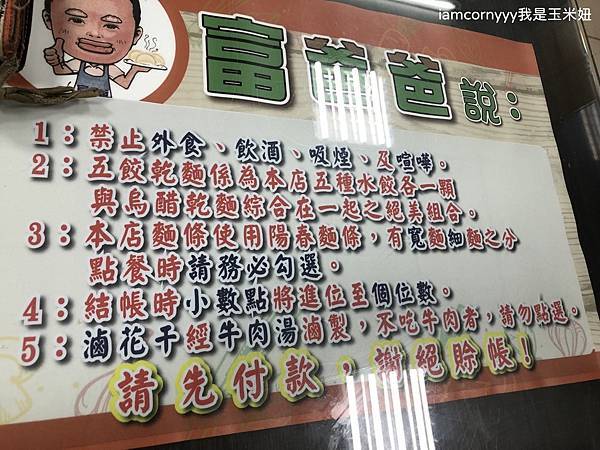 Iamcornyyy我是玉米妞
富爸爸說：
1：禁止外食、飲酒、吸煙、及喧嘩。
2：五餃乾麵係為本店五種水餃各一顆
與烏醋乾麵綜合在一起之絕美組合。
3：本店麵條使用陽春麵條，有寬麵細麵之分
點餐時請務必勾選。
4：結帳時小數點將進位至個位數。
5：滷花干經牛肉湯滷製，不吃牛肉者，請勿點選。
請先付款，謝絕賒帳！